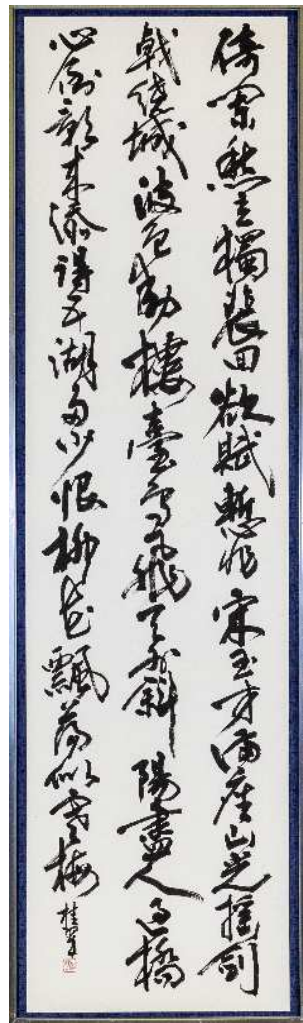 倚闌愁立獨裴回欲賦慙非宋玉才滿座山光搖劍
戟繞城波色動樓臺鳥飛天外斜陽盡人過橋
心倒影来添得五湖多少恨柳花飄蕩似寒梅